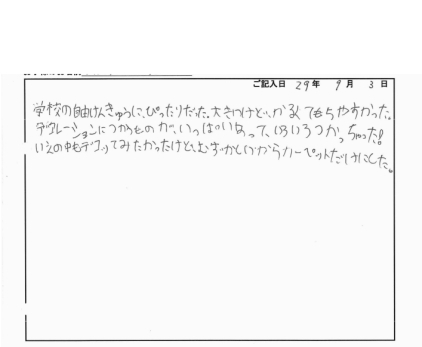 ご記入日 29年 9月 3日
学校の自由けんきゅうに、ぴったりだった。大きいけど、かるくてもちやすかった。
デコレーションにつかうものが、いっぱいあって、いろいろつかっちゃった!
いえの中もデコってみたかったけど、むずかしいからカーペットだけにした。